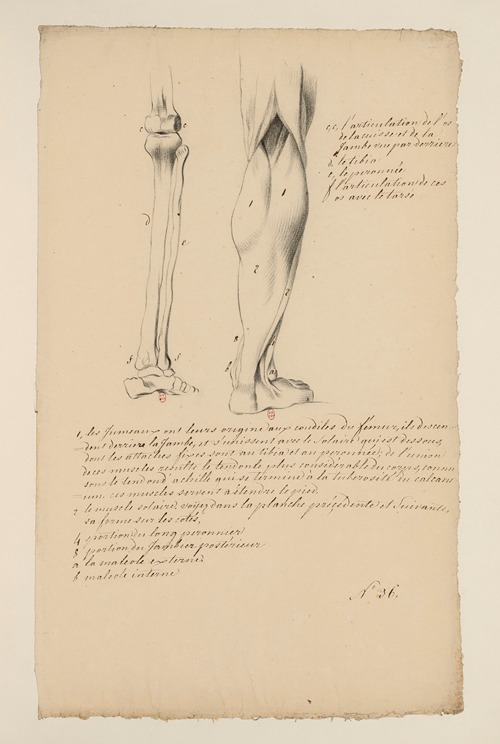 c, c, l'articulation de l'os
de la cuisse et de la
Jambe vue par derriere
d, le tibia
e, le peronnée
f l'articulation de ces
os avec le tarse
c c
d
e
f f
1 1
2
2
8
b
a
1, les Jumeaux ont leurs origine aux condiles du fémur, ils descen
dent derriere la Jambe, et s'unissent avec le Solaire qui est dessous,
dont les attaches fixes sont au tibia et au peronnée; de l'union
de ces muscles resulte le tendon le plus considerable du corps, connu
sous le tendon d'achille qui se termine à la tuberosité du calcan
eum. ces muscles servent a étendre le pied.
2 le muscle solaire. voyez dans la planche précédente et Suivante,
sa forme sur les cotés,
4 portion du long peronnier
8 portion du Jambier postérieur
a la maleole externe
b maleole interne
N.º 36.